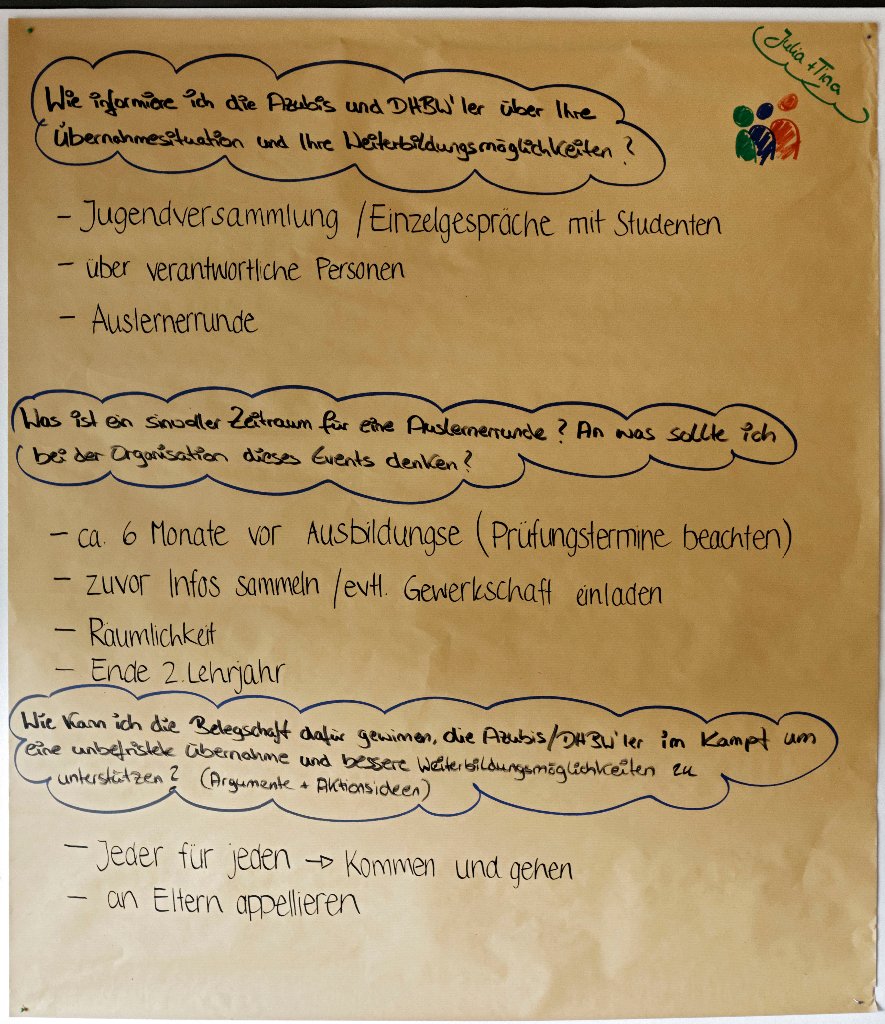 Julia + Tina
Wie informiere ich die Azubis und DHBW'ler über Ihre
Übernahmesituation und Ihre Weiterbildungsmöglichkeiten?
- Jugendversammlung / Einzelgespräche mit Studenten
- über verantwortliche Personen
- Auslernerrunde
Was ist ein sinnvoller Zeitraum für eine Auslernerrunde? An was sollte ich
bei der Organisation dieses Events denken?
- ca. 6 Monate vor Ausbildungse (Prüfungstermine beachten)
- zuvor Infos sammeln / evtl. Gewerkschaft einladen
- Räumlichkeit
- Ende 2. Lehrjahr
Wie kann ich die Belegschaft dafür gewinnen, die Azubis/DHBW'ler im Kampf um
eine unbefristete Übernahme und bessere Weiterbildungsmöglichkeiten zu
unterstützen? (Argumente + Aktionsideen)
- Jeder für jeden → Kommen und gehen
- an Eltern appellieren